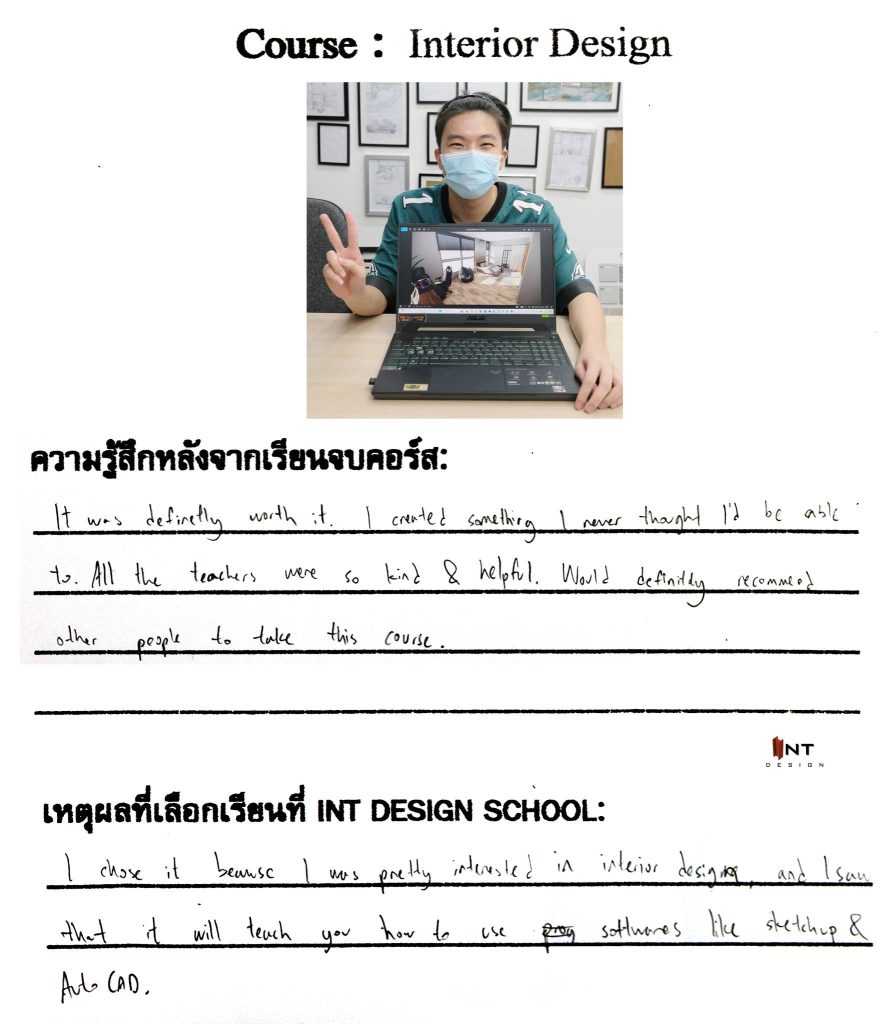 Course : Interior Design
11
ASUS
ความรู้สึกหลังจากเรียนจบคอร์ส:
It was definetly worth it. I created something I never thought I'd be able
to. All the teachers were so kind & helpful. Would definitly recommend
other people to take this course.
INT
DESIGN
เหตุผลที่เลือกเรียนที่ INT DESIGN SCHOOL:
I chose it beause I was pretty interested in interior designing, and I saw
that it will teach you how to use prog softwares like sketchup &
AutoCAD.